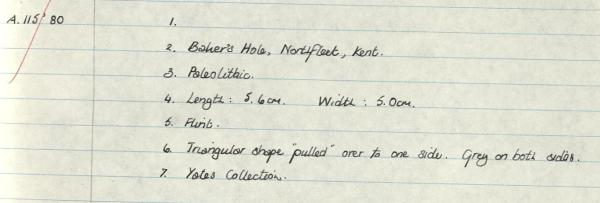 A.115'80 1.
2. Baker's Hole, Northfleet, Kent.
3. Paleolithic.
4. Length: 5.6cm. Width: 5.0cm.
5. Flint.
6. Triangular shape "pulled" over to one side. Grey on both sides.
7. Yates Collection.